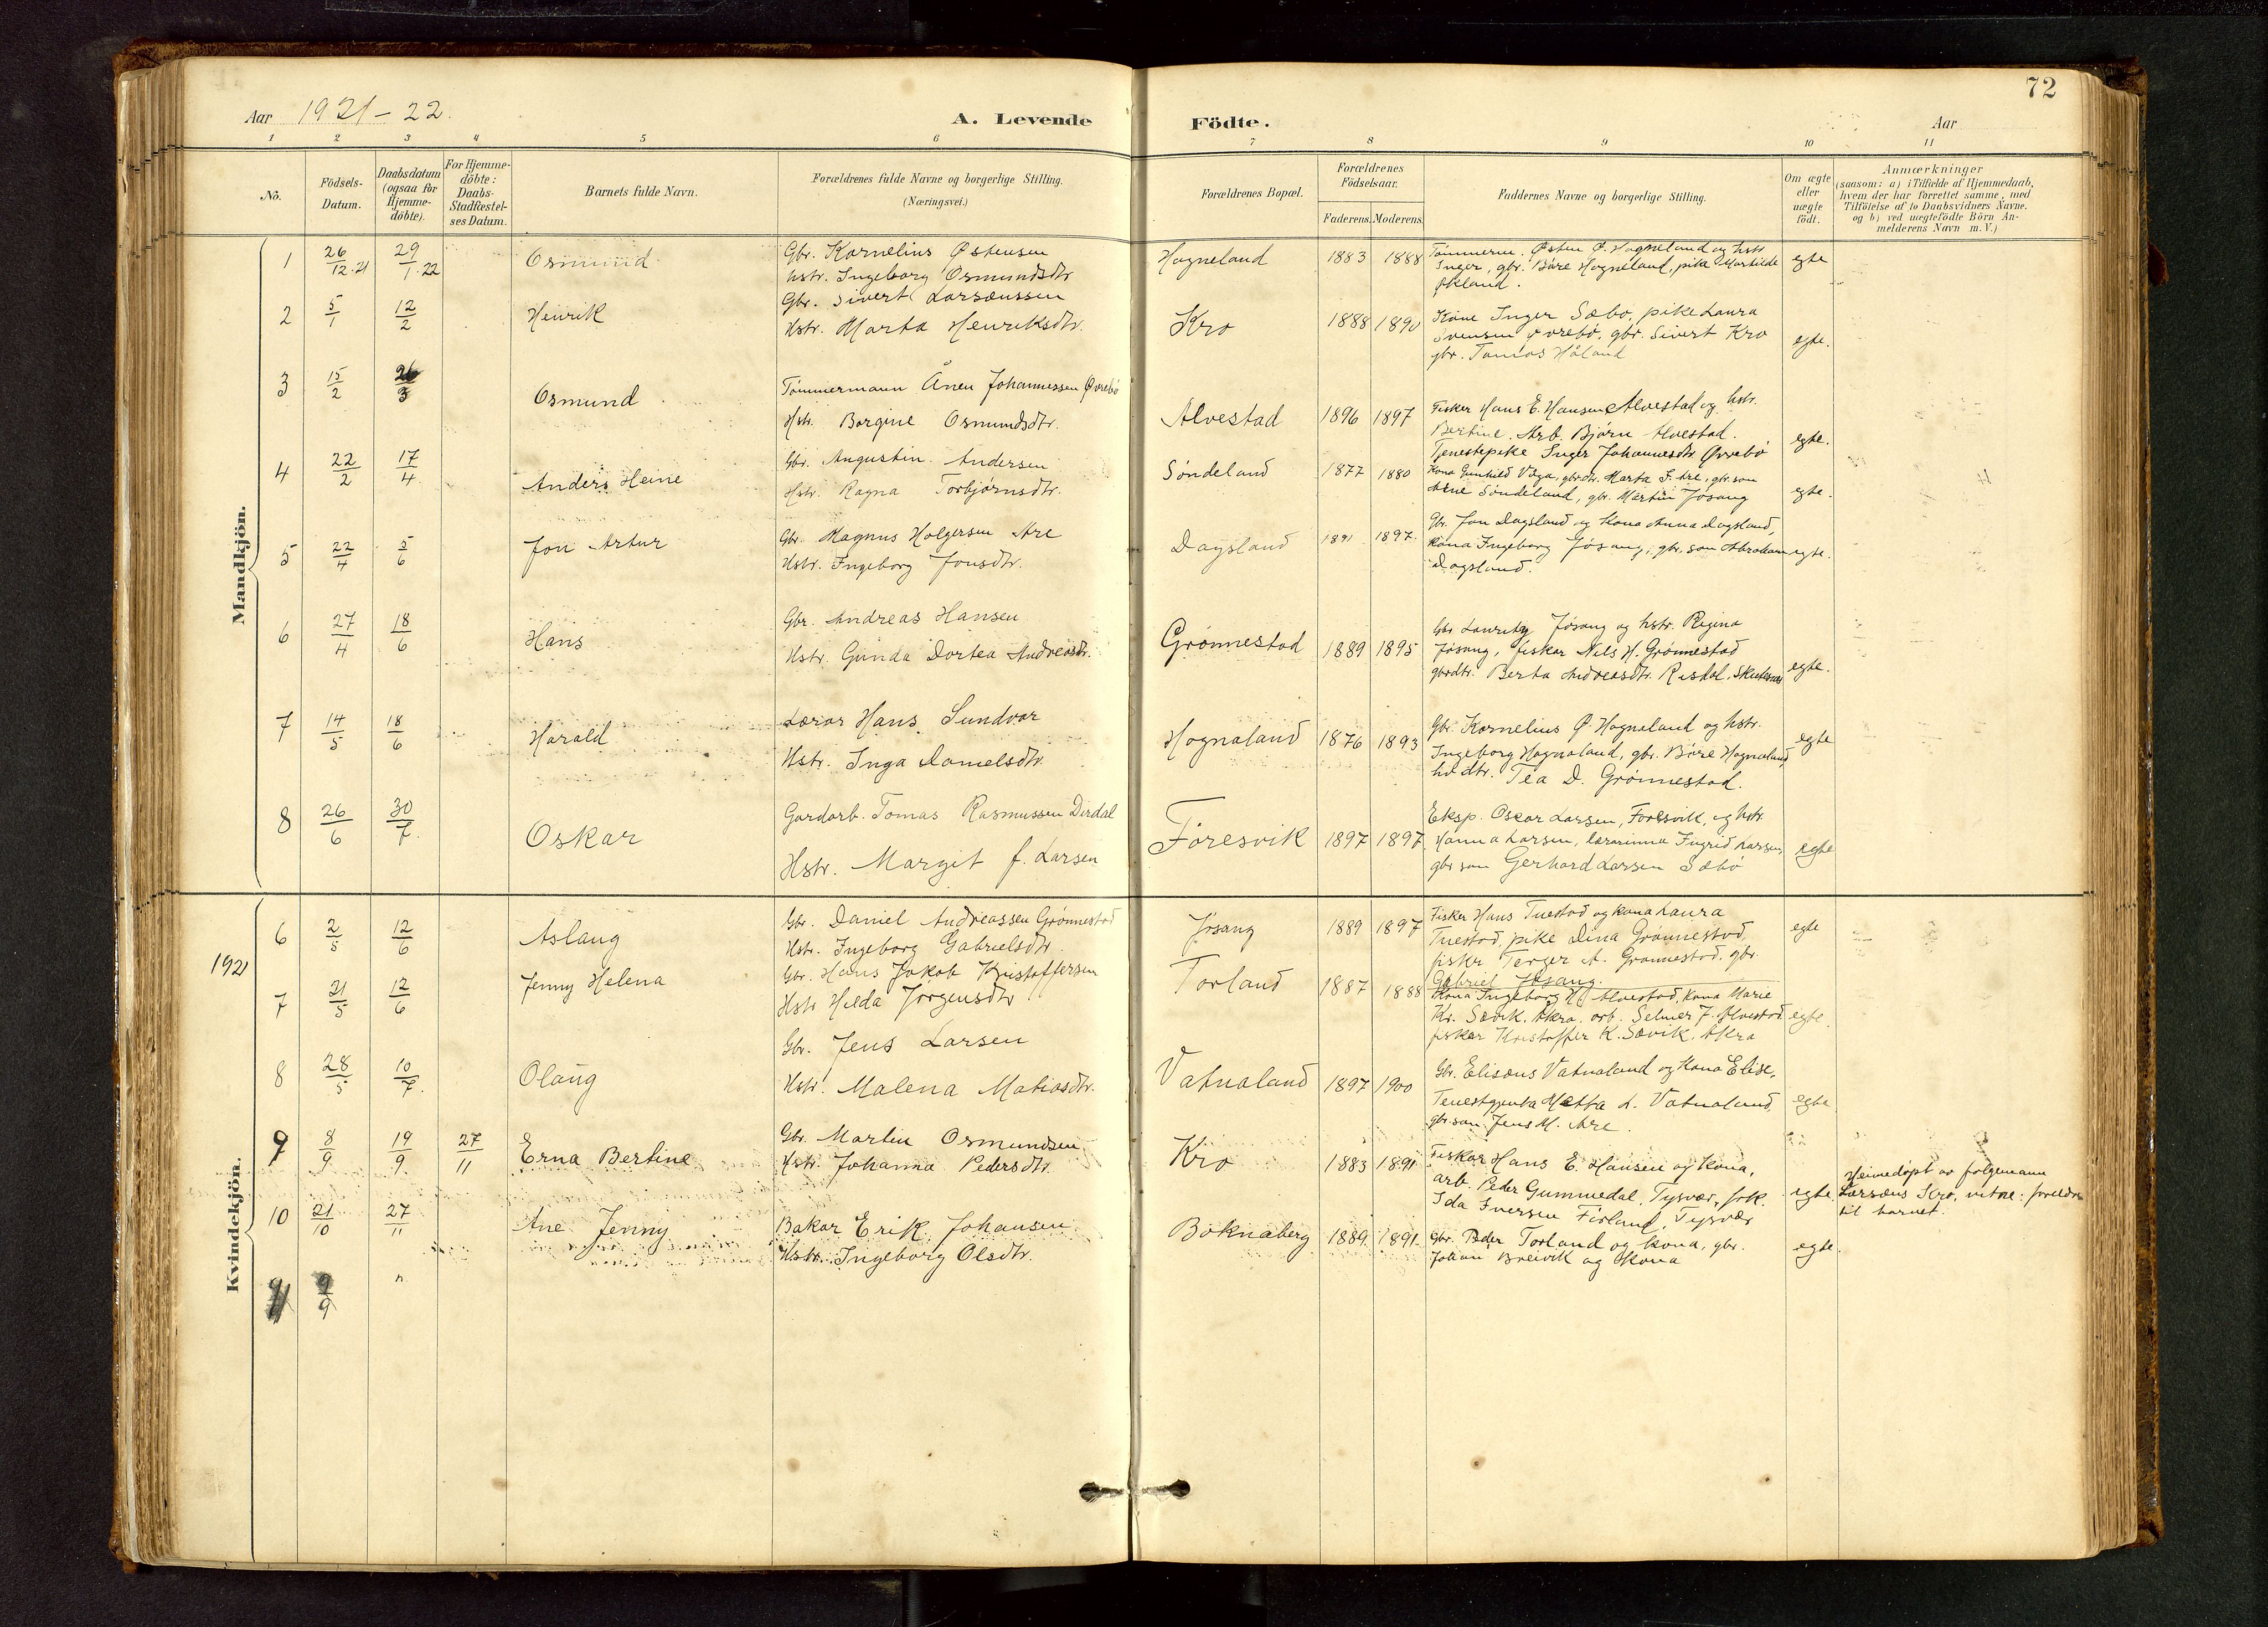 72
Aar 1921-22.
A. Levende Födte.
Aar
1 2 3 4 5 6 7 8 9 10 11
No.
Födsels-
Datum.
Daabsdatum
(ogsaa for
Hjemme-
döbte).
For Hjemme-
döbte:
Daabs-
Stadfæstel-
ses Datum.
Barnets fulde Navn.
Forældrenes fulde Navne og borgerlige Stilling.
(Næringsvei.)
Forældrenes Bopæl.
Forældrenes
Födselsaar.
Faderens. Moderens.
Faddernes Navne og borgerlige Stilling.
Om ægte
eller
uægte
födt.
Anmærkninger
(saasom: a) i Tilfælde af Hjemmedaab,
hvem der har forrettet samme, med
Tilföielse af to Daabsvidners Navne.
og b) ved uegtefödte Börn An-
melderens Navn m. V.)
Mandkjön.
1 26/12.21 29/1.22 Osmund
Gbr. Kornelius Østensen
hstr. Ingeborg Osmundsdtr
Hogneland 1883 1888
Tømmerm. Østen Ø. Hogneland og hstr
Inger, gbr. Båre Hogneland, pike Marhilde
Økland.
egte
2 5/1 12/2 Henrik
Gbr. Sivert Larsænssen
Hstr. Marta Henriksdtr.
Kro 1888 1890
Kone Inger Sæbo, pike Laura
Svensen Øvrebø, gbr. Sivert Kro
gbr. Tomas Håland
egte.
3 15/2 26/3 Osmund
Tømmermann Ånen Johannessen Øvrebø
Hstr. Borgine Osmundsdtr.
Alvestad 1896 1897
Fisker Hans E. Hansen Alvestad og hstr.
Bertine. Arb. Bjørn Alvestad.
Tjenestepike Inger Johannesdtr Øvrebø
egte.
4 22/2 17/4 Anders Heine
Gbr. Augustin Andersen
Hstr. Ragna Torbjørnsdtr.
Søndeland 1877 1880
Kona Gunhild Våga, gbrdtr. Marta F. Are, gbr.son
Arne Søndeland, gbr. Martin Jøsang
egte.
5 22/4 5/6 Jon Artur
Gbr. Magnus Holgersen Are
Hstr. Ingeborg Jonsdtr.
Dagsland 1891 1897.
Gbr. Jon Dagsland og Kona Anna Dagsland,
Kona Ingeborg Jøsang, gbr. son Abraham
Dagsland.
egte.
6 27/4 18/6 Hans
Gbr. Andreas Hansen
Hstr. Gunda Dortea Andreasdtr.
Grønnestad 1889 1895
Gbr Lauritz Jøsang og hstr. Regina
Jøsang, fisker Nils H. Grønnestad
gbrdtr. Berta Andreasdtr. Risdal,
egte.
7 14/5 18/6 Harald
Lærar Hans Sundvor
Hstr. Inga Danielsdtr.
Hognaland 1876 1893
Gbr. Kornelius Ø. Hognaland og hstr.
Ingeborg Hognaland, gbr. Båre Hognaland,
hv dtr. Tea D. Grønnestad.
egte
8 26/6 30/7. Oskar
Gardarb. Tomas Rasmussen Dirdal
Hstr. Margit f. Larsen
Føresvik 1897 1897
Eksp. Oscar Larsen, Foresvik, og hstr.
Hanna Larsen, lærarinna Ingrid Larsen,
gbr son Gerhard Larsen Sæbø
egte
Kvindekjön.
1921
6 2/5 12/6 Aslaug
Gbr. Daniel Andreassen Grønnestad
Hstr. Ingeborg Gabrielsdtr.
Jøsang 1889 1897
Fisker Hans Tuestad og kona Laura
Tuestad, pike Dina Grønnestad,
fiskr Terger A. Grønnestad. gbr.
Gabriel Jøsang.
egte
7 21/5 12/6 Jenny Helena
Gbr. Hans Jakob Kristoffersen
Hstr Hilda Jørgensdtr
Torland 1887 1888
Kona Ingeborg H. Alvestad, Kona Marie
Kr. Sævik. Åkra. arb. Selmer J. Alvestad
fisker Kristoffer K. Sævik. Åkra
egte.
8 28/5 10/7. Olaug
Gbr. Jens Larsen
Hstr. Malena Matiasdtr.
Vatnaland 1897 1900
Gbr. Elisæus Vatnaland og Kona Elise,
Tenestgjenta Metta L. Vatnaland,
gbr.son Jens M. Are.
egte
9 8/9 19/9. 27/11 Erna Bertine
Gbr. Martin Osmundsen
Hstr. Johanna Pedersdtr.
Kro 1883 1891
Fiskar Hans E. Hansen og Kona,
arb. Peder Gummedal, Tysvær, frk.
Ida Iversen Førland, Tysvær
egte.
Heimedøpt av følgemann
Larsæus Kro, vitne: foreldre
til barnet.
10 21/10 27/11 Ane Jenny
Bakar Erik Johansen
Hstr. Ingeborg Olsdtr.
Boknaberg 1889. 1891.
Gbr. Peder Torland og kona, gbr.
Johan Breivik og Kona
egte.
9/9 "